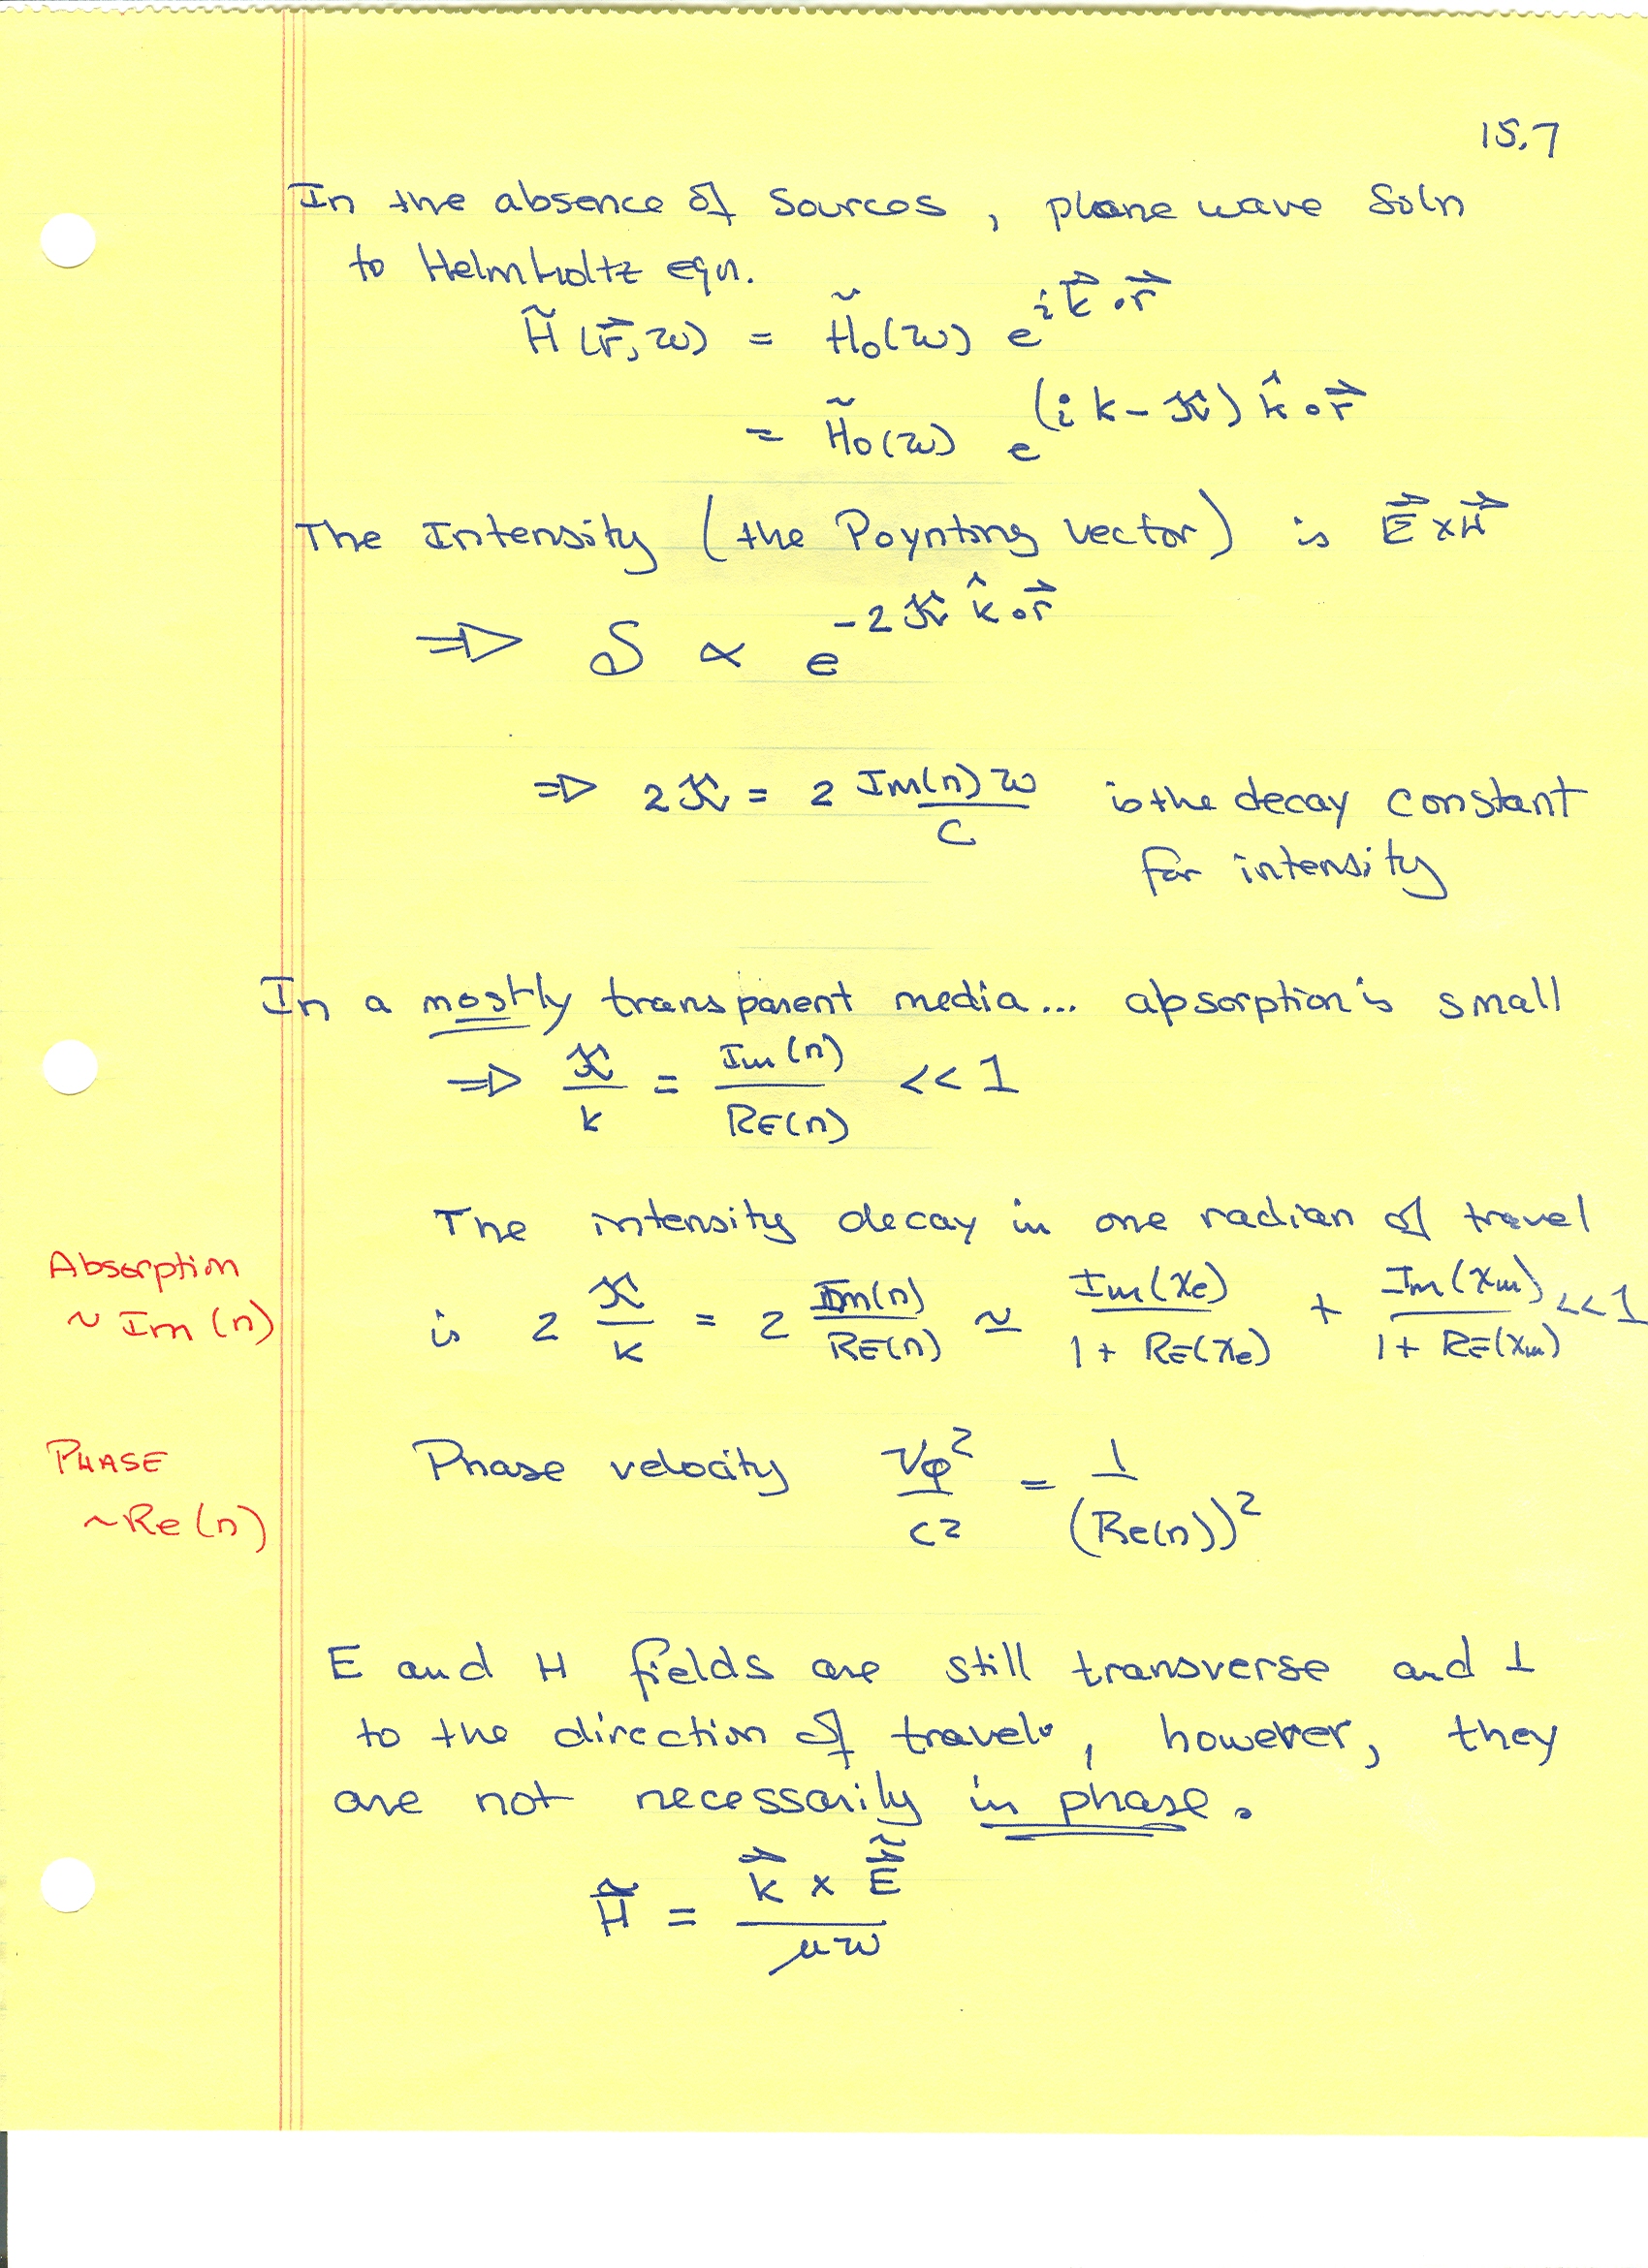 15.7
In the absence of Sources, plane wave Soln
to Helmholtz eqn.
H̃(r⃗,ω) = H̃₀(ω) e^{i k⃗·r⃗}
= H̃₀(ω) e^{(i k - 𝒦) k̂·r⃗}
The Intensity (the Poynting vector) is E⃗ × H⃗
⇒ S ∝ e^{-2𝒦 k̂·r⃗}
⇒ 2𝒦 = 2 Im(n) ω / c is the decay constant
for intensity
In a mostly transparent media... absorption is small
⇒ 𝒦/k = Im(n)/RE(n) << 1
The intensity decay in one radian of travel
Absorption
~ Im(n)
is 2 𝒦/k = 2 Im(n)/RE(n) ≃ Im(χe)/(1 + RE(χe)) + Im(χm)/(1 + RE(χm)) << 1
PHASE
~Re(n)
Phase velocity vφ²/c² = 1/(Re(n))²
E and H fields are still transverse and ⊥
to the direction of travel, however, they
are not necessarily in phase.
H̃⃗ = k⃗ × Ẽ⃗ / μω